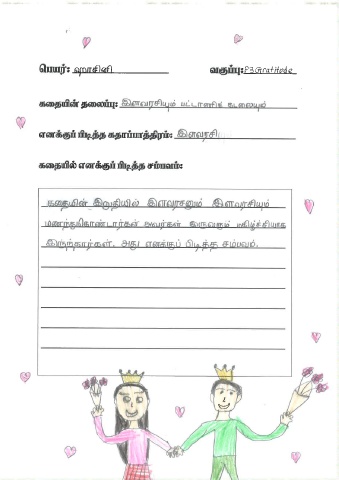 பெயர்: ஹாசினி வகுப்பு: P3 Gratitude
கதையின் தலைப்பு: இளவரசியும் பட்டாணிக் கடலையும்
எனக்குப் பிடித்த கதாப்பாத்திரம்: இளவரசி
கதையில் எனக்குப் பிடித்த சம்பவம்:
கதையின் இறுதியில் இளவரசனும் இளவரசியும்
மணந்துகொண்டார்கள் அவர்கள் இருவரும் மகிழ்ச்சியாக
இருந்தார்கள். அது எனக்குப் பிடித்த சம்பவம்.